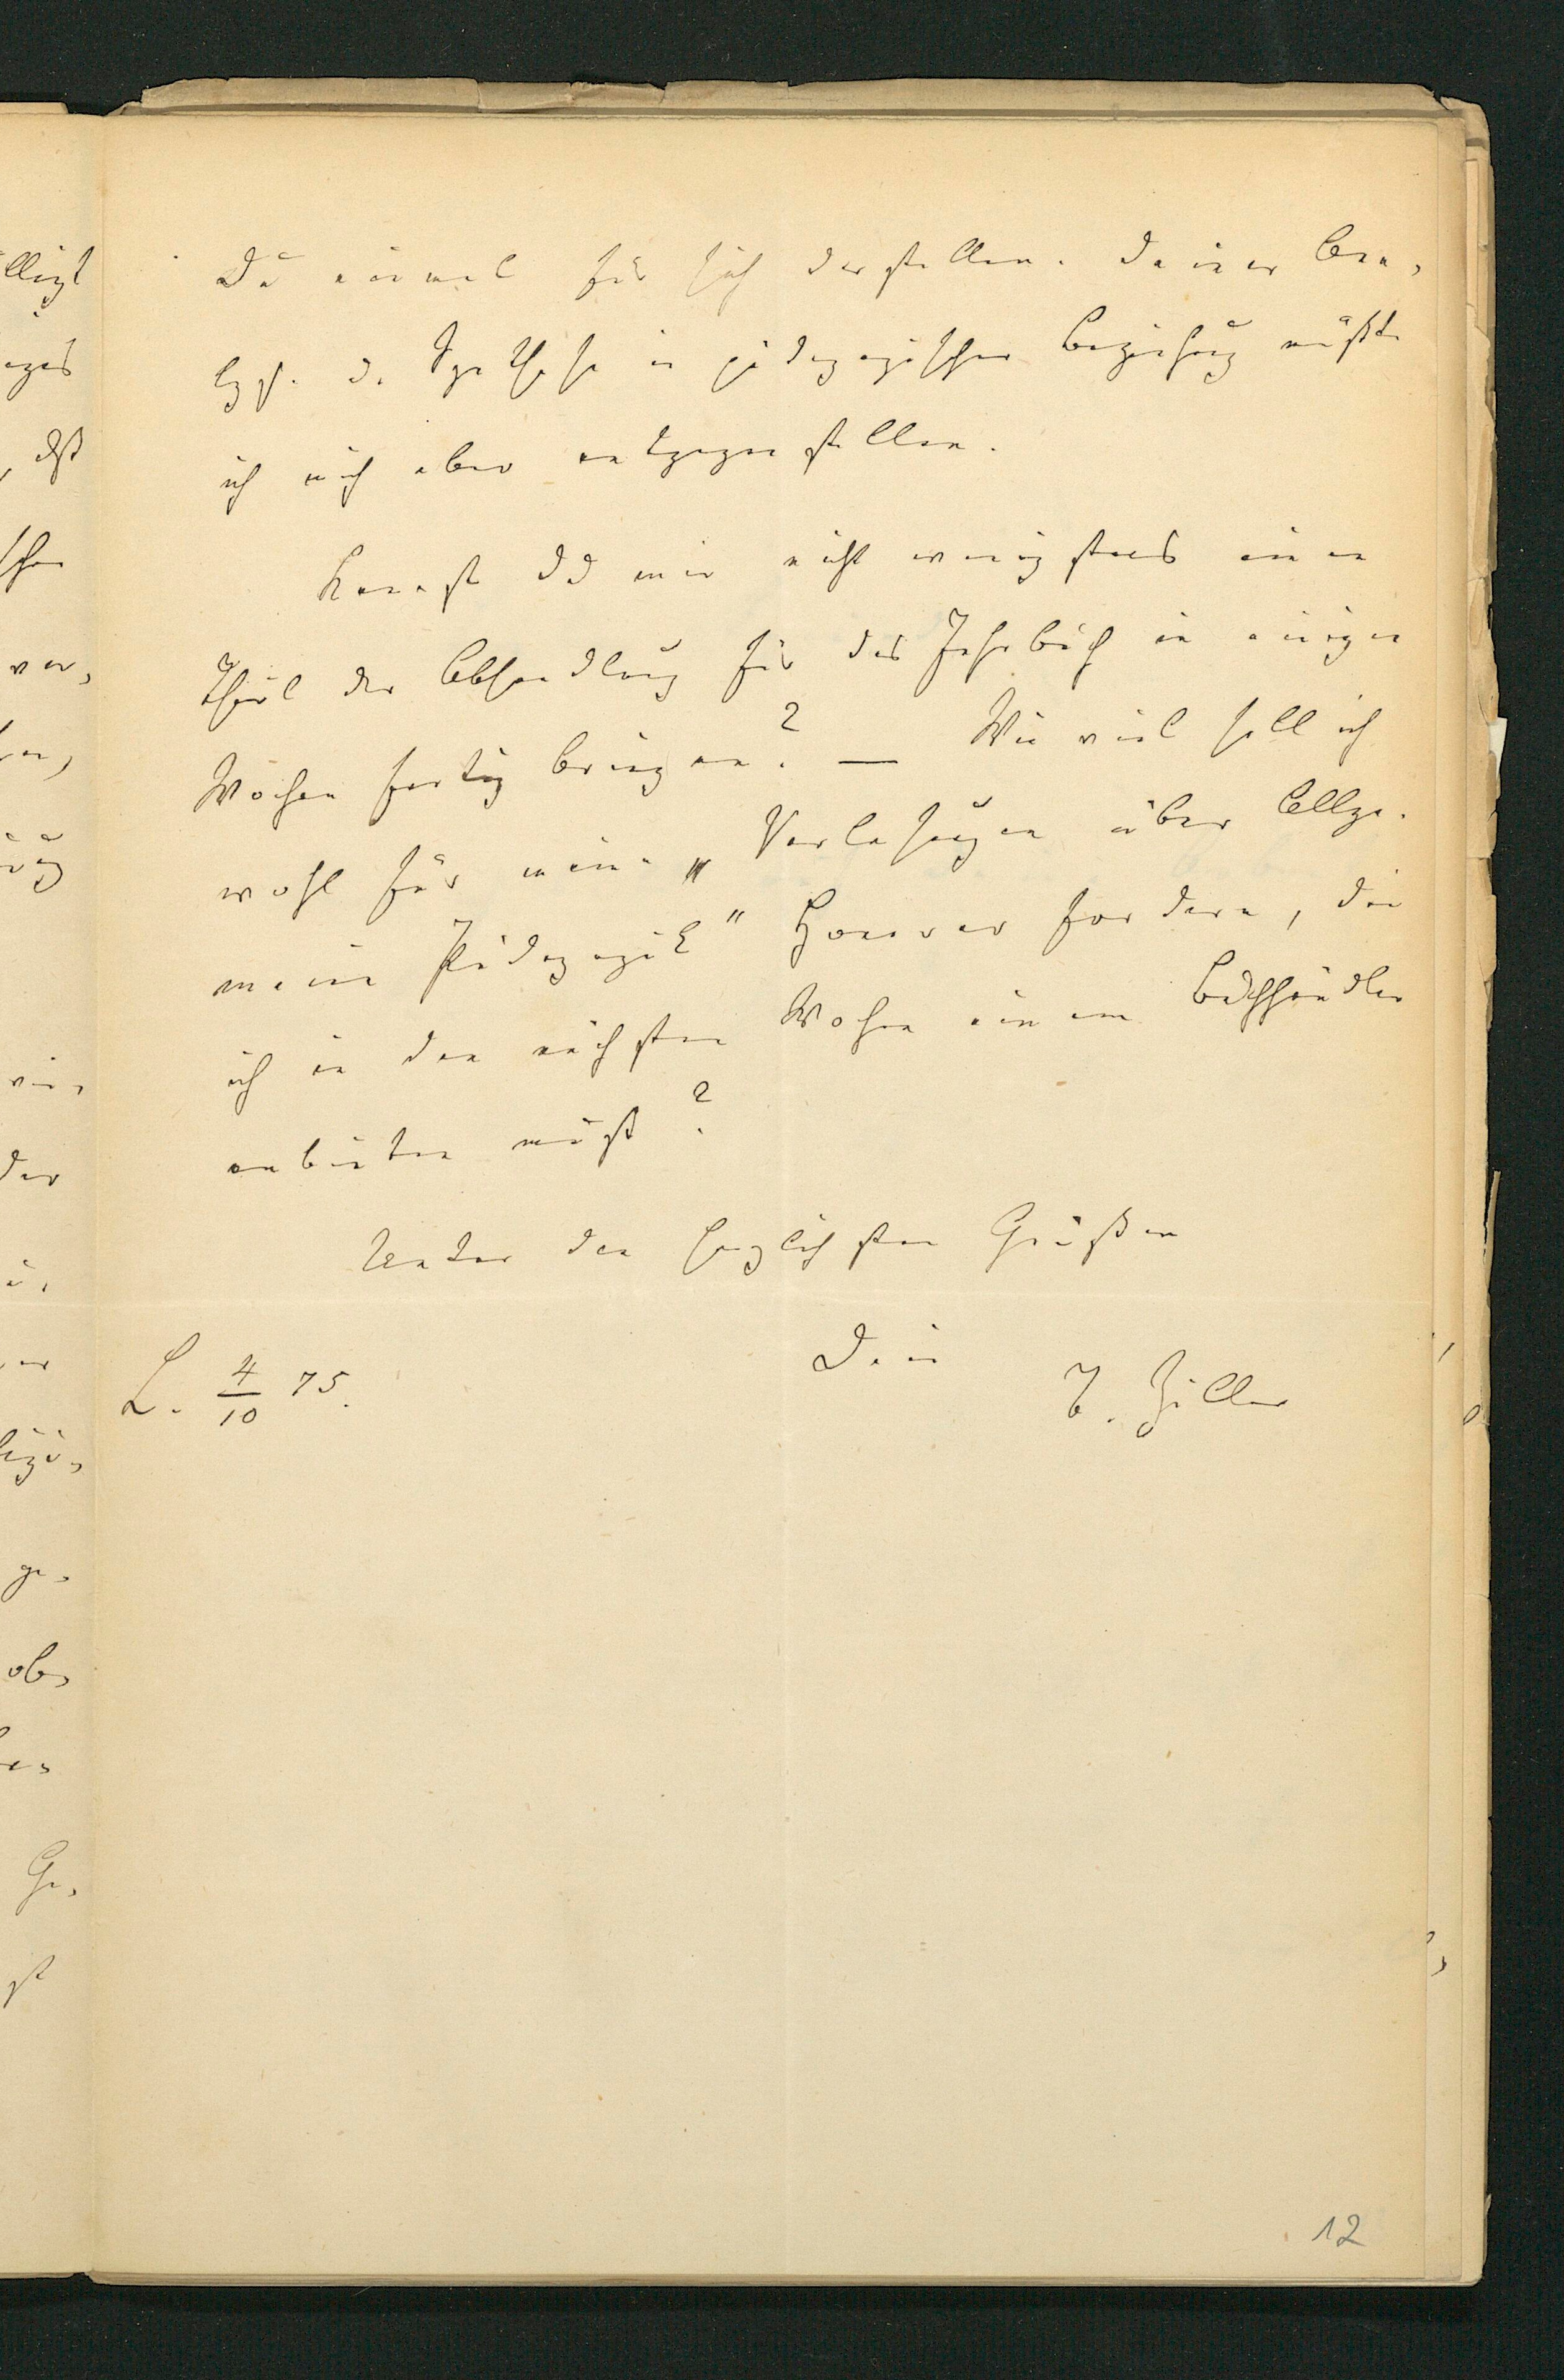 Du einmal für sich darstellen. Deiner Ana-
lyse d. Synthese in pädagogischer Beziehung müßte
ich mich aber entgegenstellen.
Kannst Du mir nicht wenigstens einen
Theil der Abhandlung für das Jahrbuch in einigen
Wochen fertig bringen? — Wie viel soll ich
wohl für meine „Vorlesungen über Allge-
meine Pädagogik" Honorar fordern, die
ich in den nächsten Wochen einem Buchhändler
anbieten muß?
Unter den herzlichsten Grüßen
Dein
L. 4/10 75.
T. Ziller
12